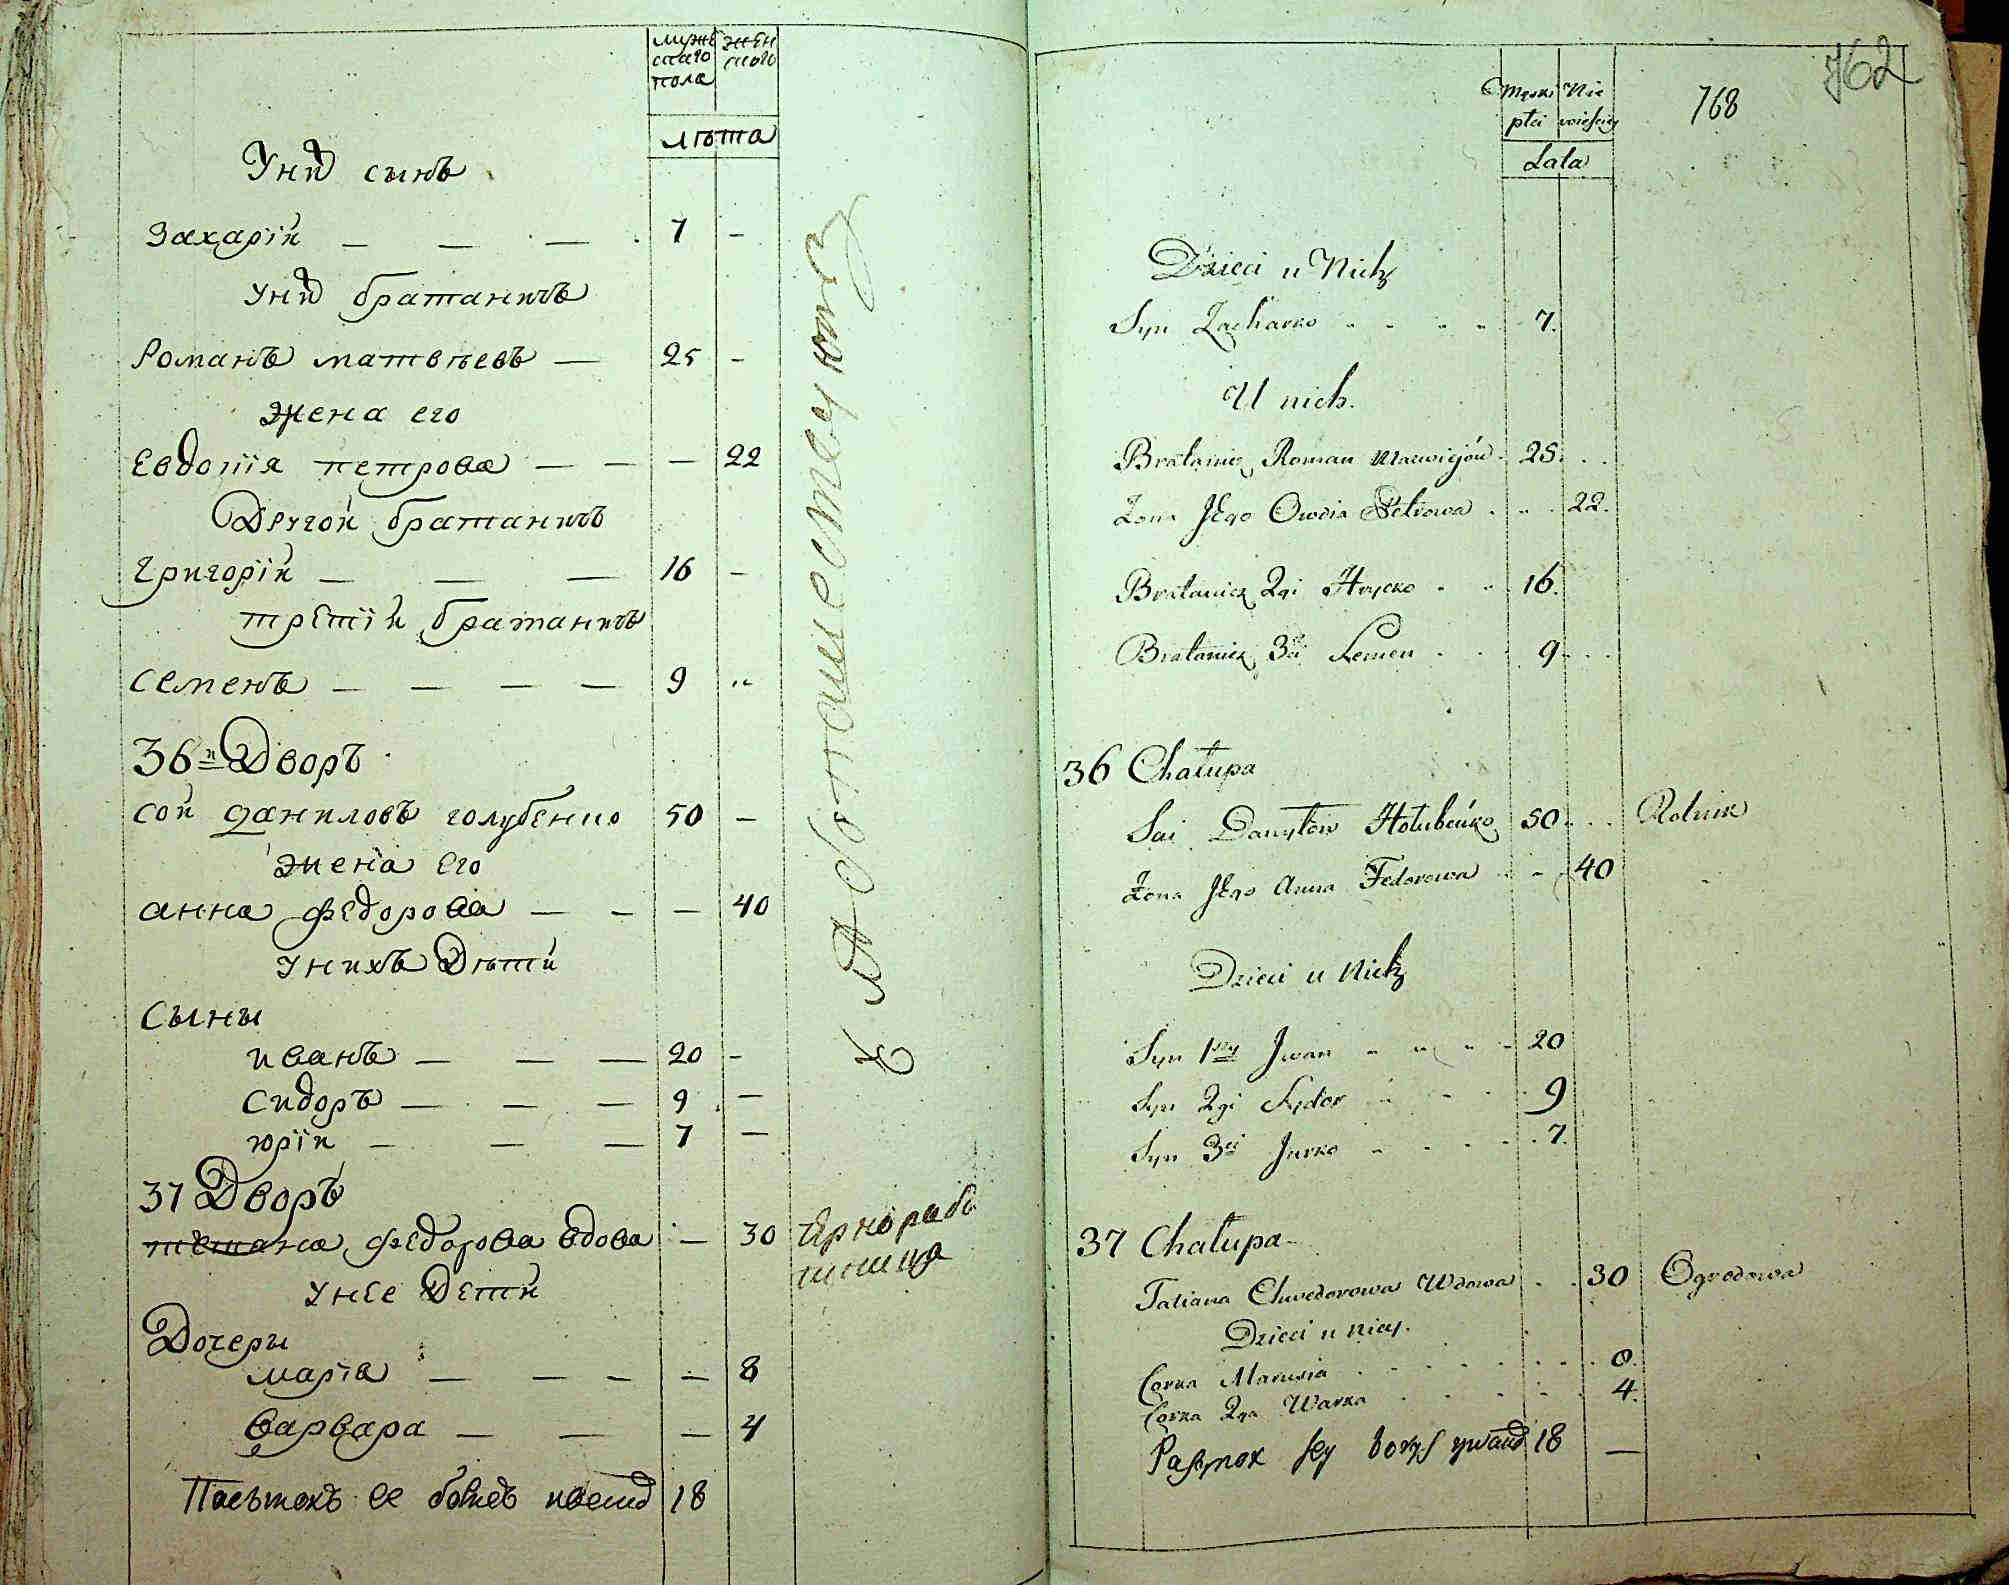 мужескаго пола
женского
лѣта
Уних сынъ
Захарїй — — — 7 —
Уних братаничъ
Романъ матвѣевъ — 25 —
жена его
Евдокїя петрова — — — 22
Другой братаничъ
Григорїй — — — 16 —
третїй братаничъ
Семенъ — — — — 9 "
36й Дворъ
сой даниловъ голубенко 50 —
жена его
анна федорова — — — 40
Унихъ Дѣти
Сыны
иванъ — — — 20 —
Сидоръ — — — 9 —
юрїи — — — 7 —
37 Дворъ
татиана федорова вдова — 30
Унее Дети
Дочеры
марїя — — — — 8
варвара — — — 4
Пасынокъ ее борисъ 18
762
Męski Nie
płci wieściey
768
Lata
Dzieci u Nich
Syn Zacharko 7.
U nich.
Bratanicz Roman Matwiejów 25.
Żona Jego Owdia Petrowa 22.
Bratanicz 2gi Hrycko 16.
Bratanicz 3ci Semen 9
36 Chałupa
Sai Danyłow Hołubeńko 50 Rolnik
Żona Jego Anna Fedorowa 40
Dzieci u Nich
Syn 1szy Jwan 20
Syn 2gi Sydor 9
Syn 3ci Jurko 7.
37 Chałupa
Tatiana Chwedorowa Wdowa 30 Ogrodowa
Dzieci u niey.
Corka Marusia 8.
Corka 2ga Warka 4.
Pasynok Jey borys 18 —